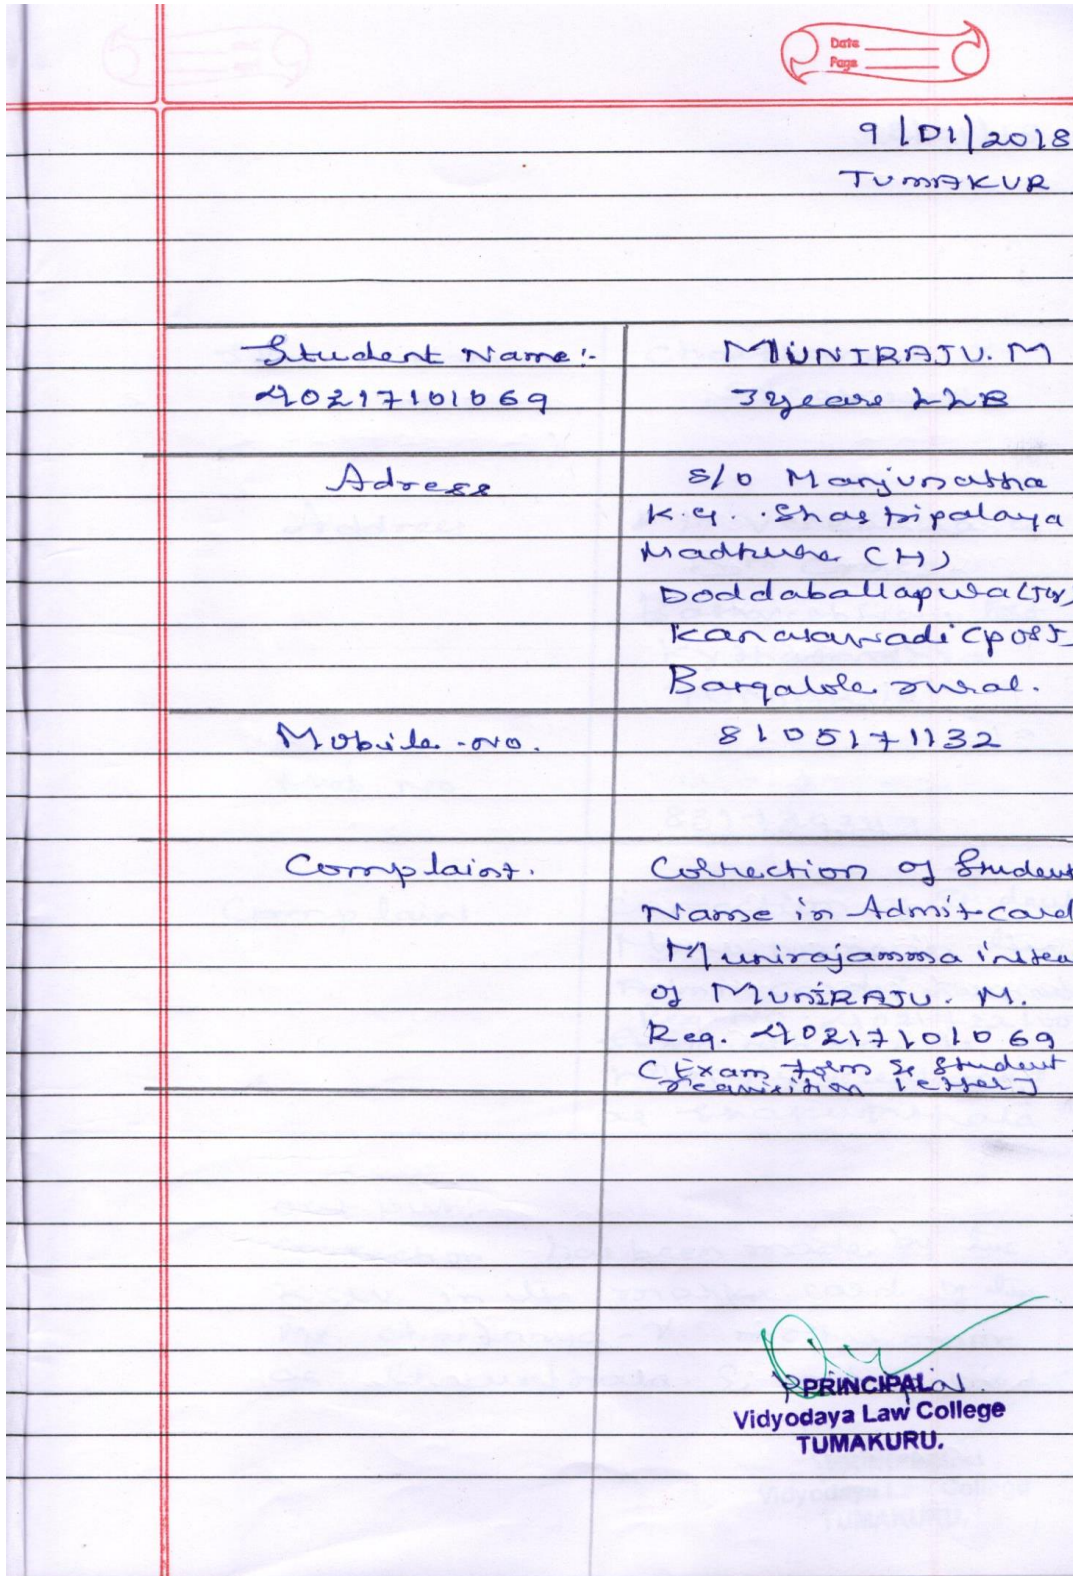 Date
Page
9/01/2018
TUMAKUR
Student Name:- MUNIRAJU. M
40217101069 3 year LLB
Adress S/o Manjunatha
K.G. Shastripalaya
Madhure (H)
Doddaballapura
Kanasawadi (post
rural.
Mobile.no. 8105171132
Complaint. Correction of Student
Name in Admit-card
Munirajamma instea
of MUNIRAJU. M.
Reg. 40217101069
(Exam form & Student
letter)
PRINCIPAL
Vidyodaya Law College
TUMAKURU.